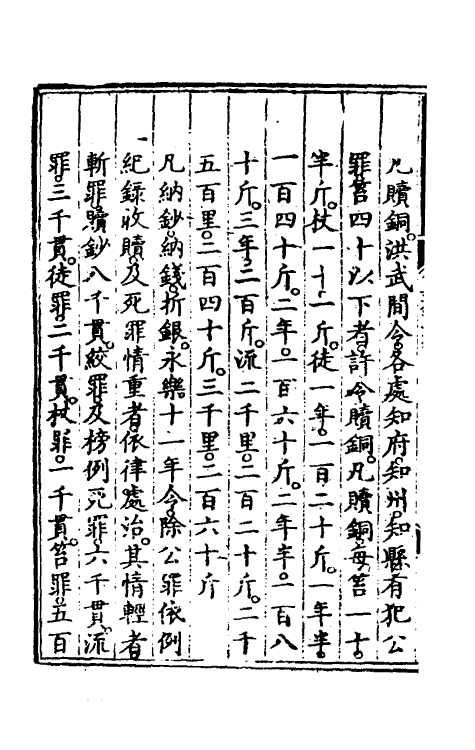 凡贖銅。洪武間令。各處知府。知州。知縣有犯公
罪。笞四十以下者。許令贖銅。凡贖銅。每笞一十。
半斤。杖一十。一斤。徒一年。一百二十斤。一年半。
一百四十斤。二年。一百六十斤。二年半。一百八
十斤。三年。二百斤。流二千里。二百二十斤。二千
五百里。二百四十斤。三千里。二百六十斤
凡納鈔。納錢。折銀。永樂十一年令。除公罪依例
紀錄收贖。及死罪情重者。依律處治。其情輕者
斬罪。贖鈔八千貫。絞罪。及榜例死罪。六千貫。流
罪。三千貫。徒罪。二千貫。杖罪。一千貫。笞罪。五百